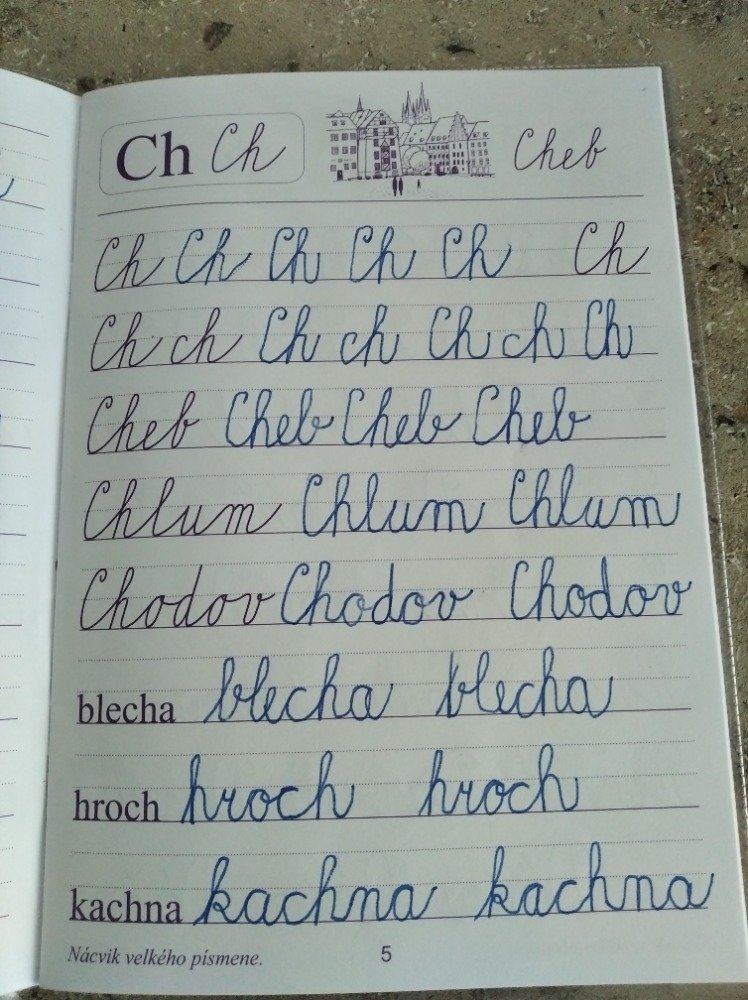 Ch Ch Cheb
Ch Ch Ch Ch Ch Ch
Ch ch Ch ch Ch ch Ch
Cheb Cheb Cheb Cheb
Chlum Chlum Chlum
Chodov Chodov Chodov
blecha blecha blecha
hroch hroch hroch
kachna kachna kachna
Nácvik velkého písmene. 5